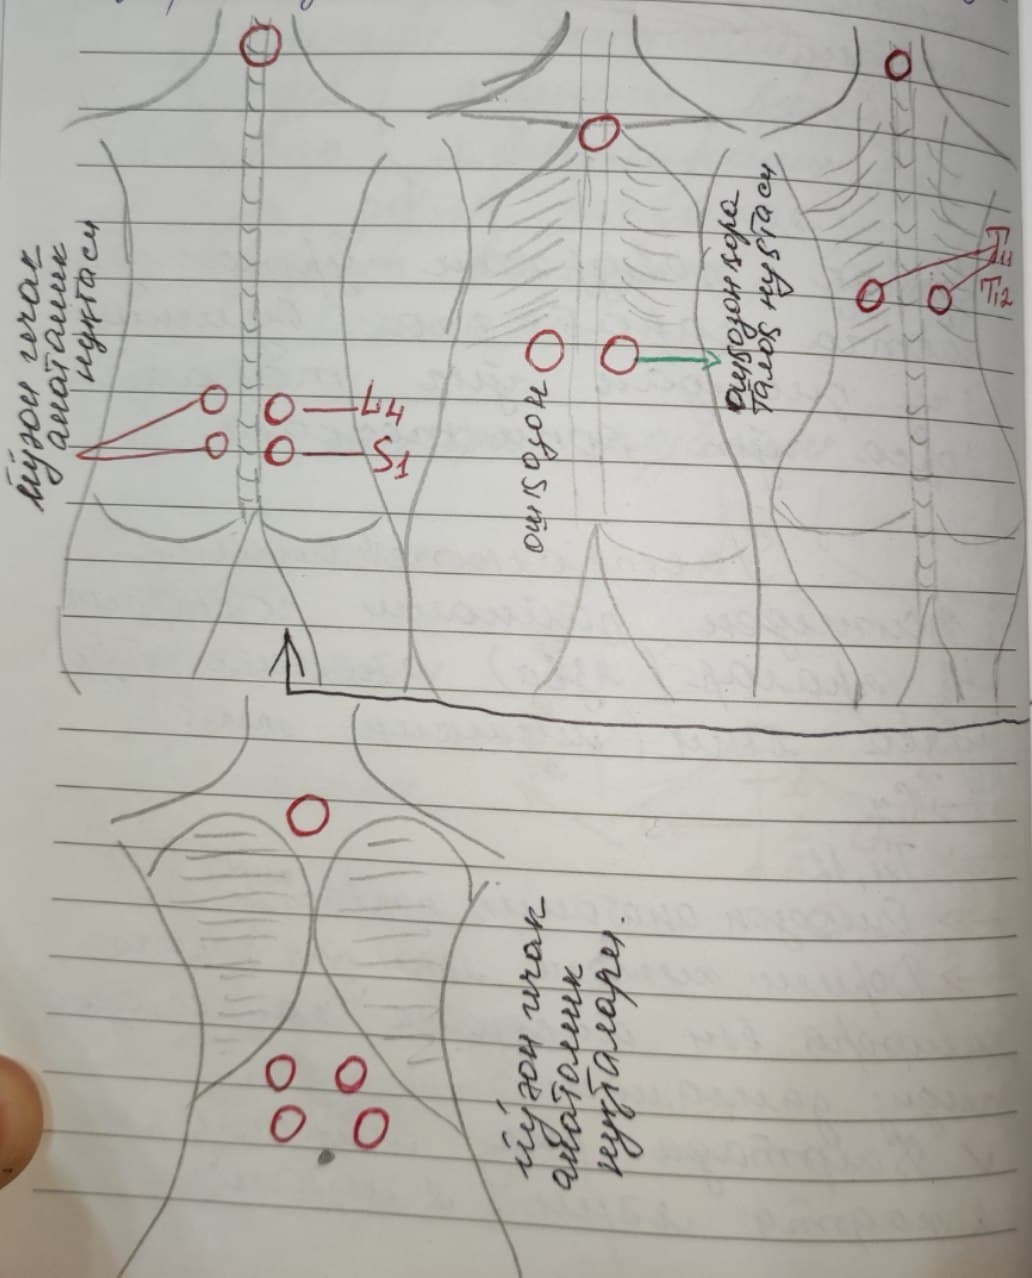 йўғон ичак
анатомик
нуқтаси
L4
S1
ошқозон
талоқ нуқтаси
T11
T12
йўғон ичак
анатомик
нуқталари.